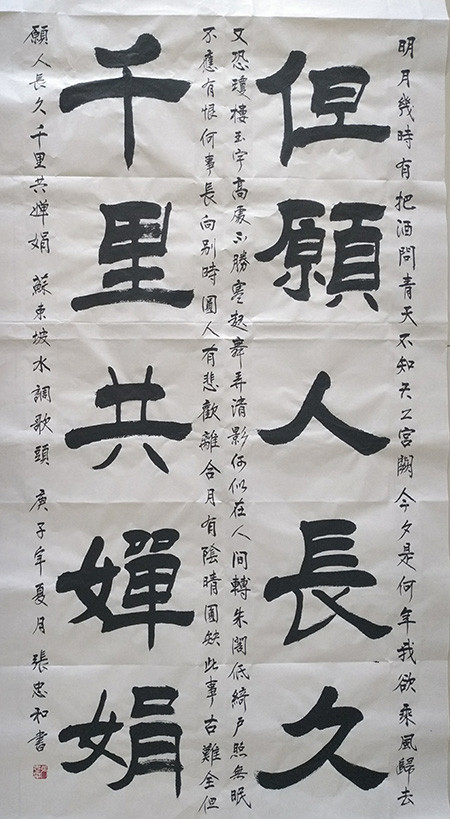 明月幾時有把酒問青天不知天上宮闕今夕是何年我欲乘風歸去
但願人長久
又恐瓊樓玉宇高處不勝寒起舞弄清影何似在人間轉朱閣低綺戶照無眠
不應有恨何事長向別時圓人有悲歡離合月有陰晴圓缺此事古難全但
千里共嬋娟
願人長久千里共嬋娟 蘇東坡水調歌頭 庚子年夏月 張忠和書